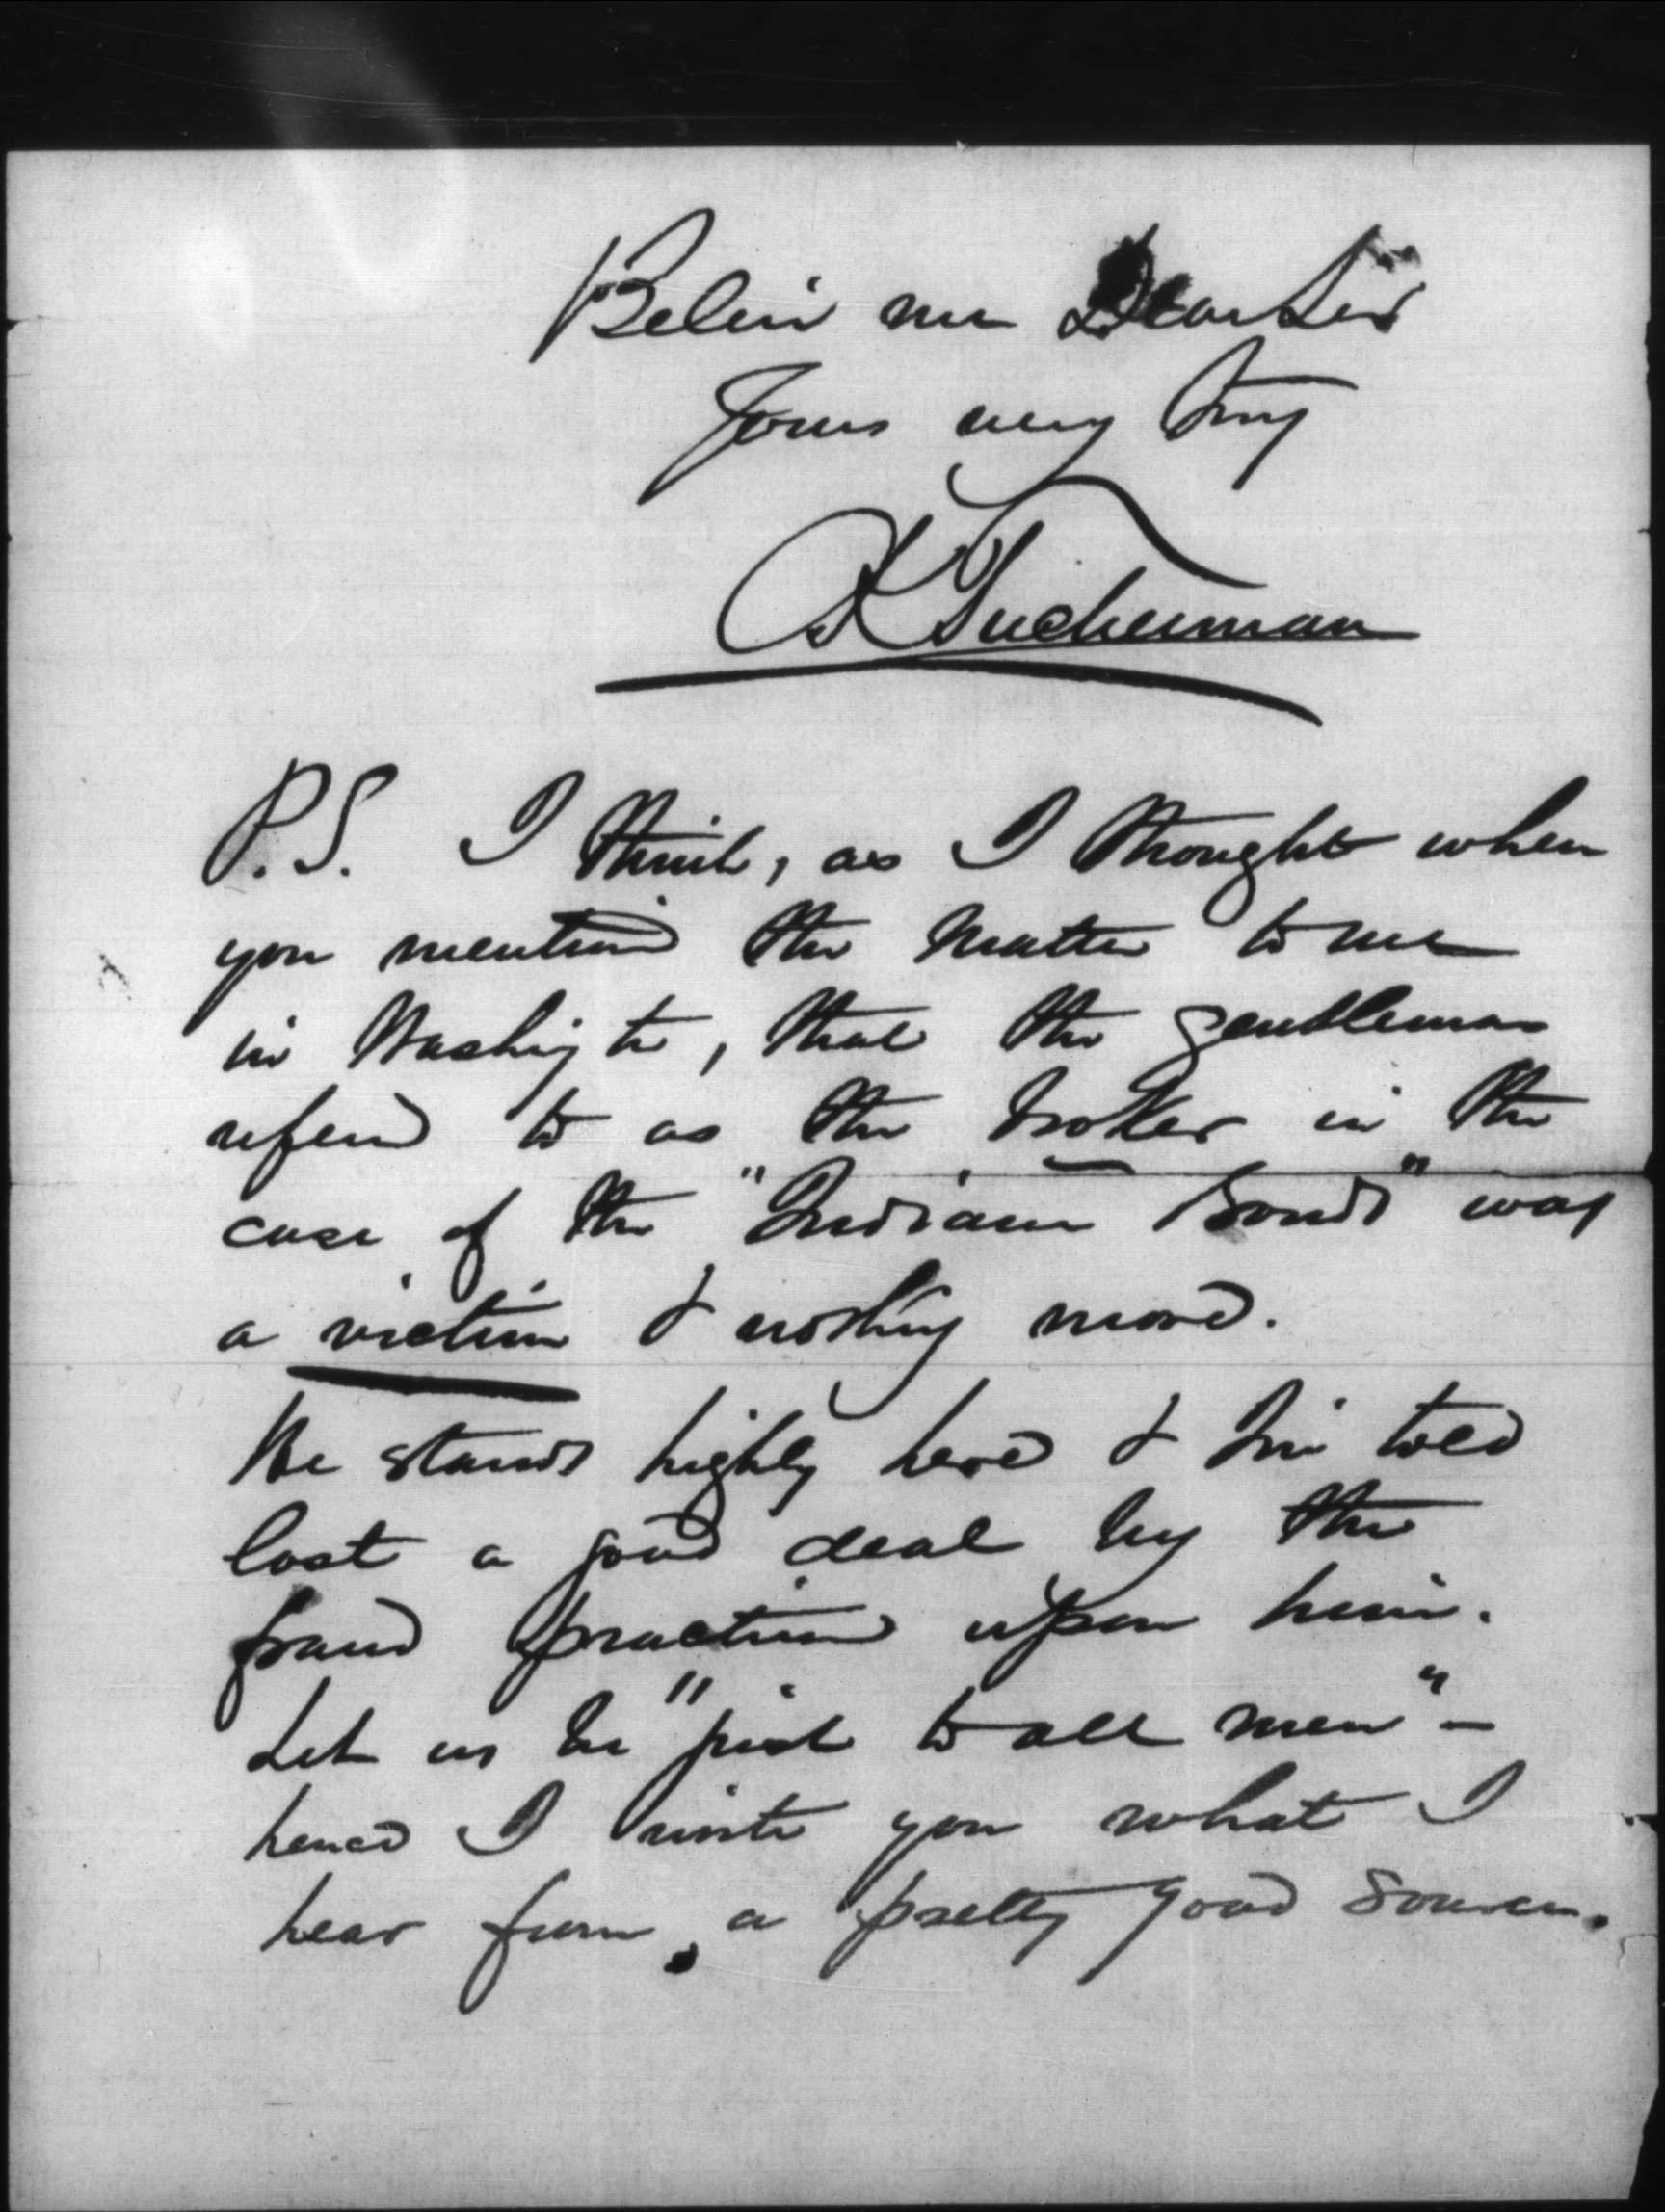 Believe me Dear Sir
Yours very truly
CK Tuckerman
P.S. I think, as I thought when
you mentioned the matter to me
in Washington, that the gentleman
referred to as the broker in the
case of the "Indiana Bonds" was
a victim & nothing more.
He stands highly here & I'm told
lost a good deal by the
fraud practiced upon him.
Let us be "just to all men" –
hence I write you what I
hear from a pretty good source.